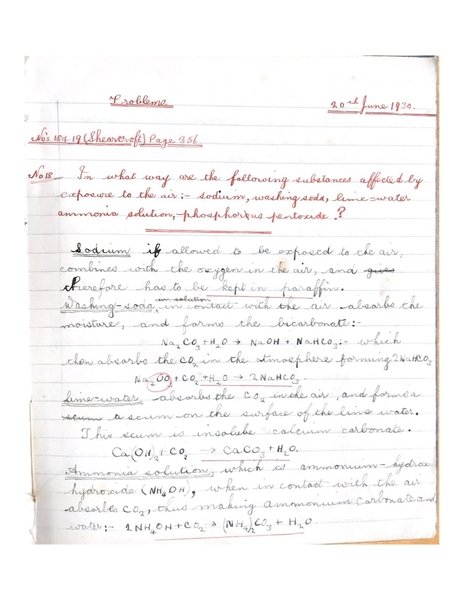 Problems.
20th June 1930.
No's 18 & 19 (Shearcroft) Page 356.
No 18. In what way are the following substances affected by
exposure to the air:- sodium, washing soda, lime-water
ammonia solution, phosphorus pentoxide.?
Sodium if allowed to be exposed to the air,
combines with the oxygen in the air, and
therefore has to be kept in paraffin.
Washing-soda, in solution in contact with the air absorbs the
moisture, and forms the bicarbonate:-
Na2CO3+H2O → NaOH + NaHCO3:- which
then absorbs the CO2 in the atmosphere forming 2NaHCO3
Na2CO3+CO2+H2O → 2NaHCO3
Lime-water, absorbs the CO2 in the air, and forms a
scum a scum on the surface of the lime water.
This scum is insoluble calcium carbonate.
Ca(OH)2+CO2 → CaCO3+H2O.
Ammonia solution, which is ammonium-hydroxe
hydroxide (NH4OH), when in contact with the air
absorbs CO2, thus making Ammonium Carbonate and
water:- 2NH4OH+CO2 → (NH4)2CO3 + H2O